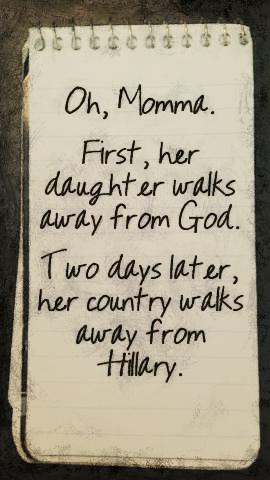 Oh, Momma.
First, her
daughter walks
away from God.
Two days later,
her country walks
away from
Hillary.